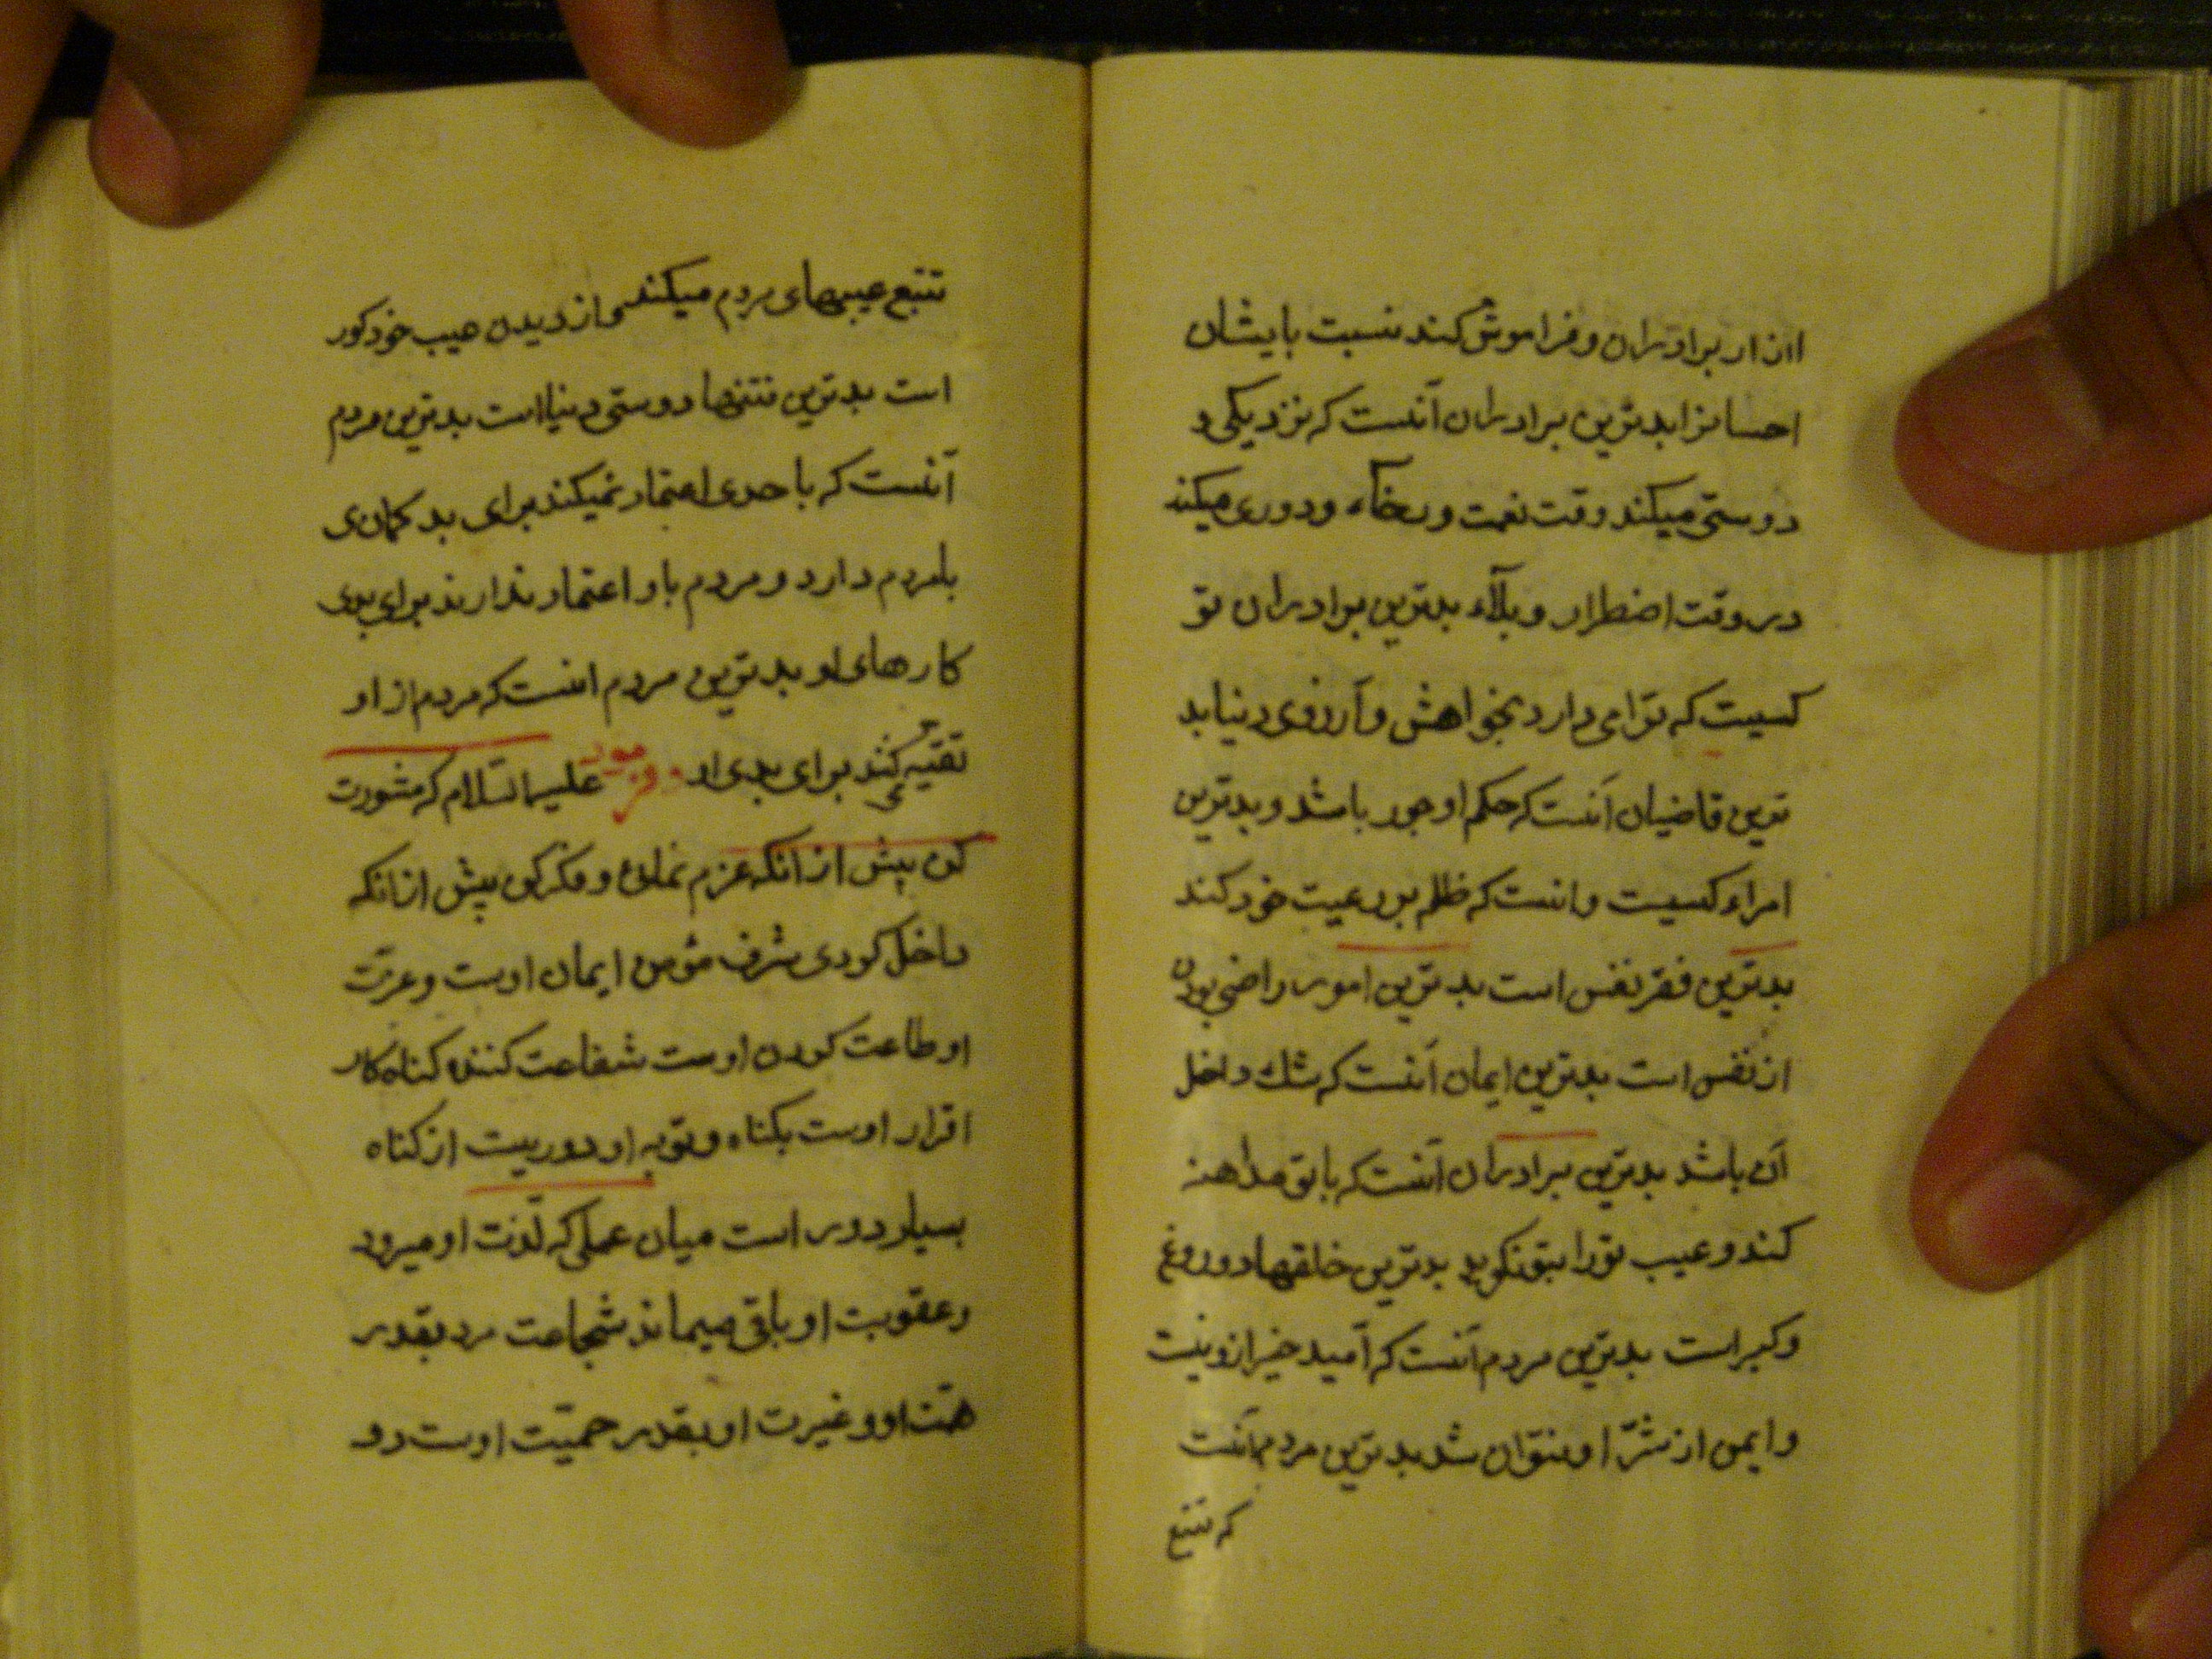 اانرار برادران و فراموش کند نسبت بایشان
احسانرا بدترین برادران آنست که نزدیکی و
دوستی میکند وقت نعمت و رخآء و دوری میکند
در وقت اضطرار و بلآء بدترین برادران تو
کسیت که ترا می دارد بخواهش و آرزوی دنیا بد
ترین قاضیان آنست که حکم او جور باشد و بدترین
امراء کسیت و انست که ظلم بر رعیت خود کند
بدترین فقر نفس است بدترین امور راضی بودن
از نفس است بدترین ایمان آنست که شك داخل
آن باشد بدترین برادران آنست که با تو مداهنه
کند و عیب تو را بتو نکوید بدترین خلقها دوروغ
و کبر است بدترین مردم آنست که امید خیر ازو نیست
و ایمن از شرّ او نتوان شد بدترین مردم آنست
که تتبع
تتبع عیبهای مردم میکند و از دیدن عیب خود کور
است بدترین فتنها دوستی دنیا است بدترین مردم
آنست که با حدی اعتماد نمیکند برای بد کمانی
بامردم دارد و مردم باو اعتماد ندارند برای بدی
کارهای او بدترین مردم انست که مردم از او
تقیّه کنند برای بدی او علیه السّلام که مشورت
کن پیش از آنکه عزم نمائی و فکر کن پیش از انکه
داخل کردی شرف مؤمن ایمان اوست و عزّت
او طاعت کردن اوست شفاعت کننده کناه کار
اقرار اوست بکناه و توبه او دوریست از کناه
بسیار دور است میان عملی که لذّت او میرود
و عقوبت او باقی میماند شجاعت مرد بقدر
همّت او و غیرت او بقدر حمیّت اوست دو